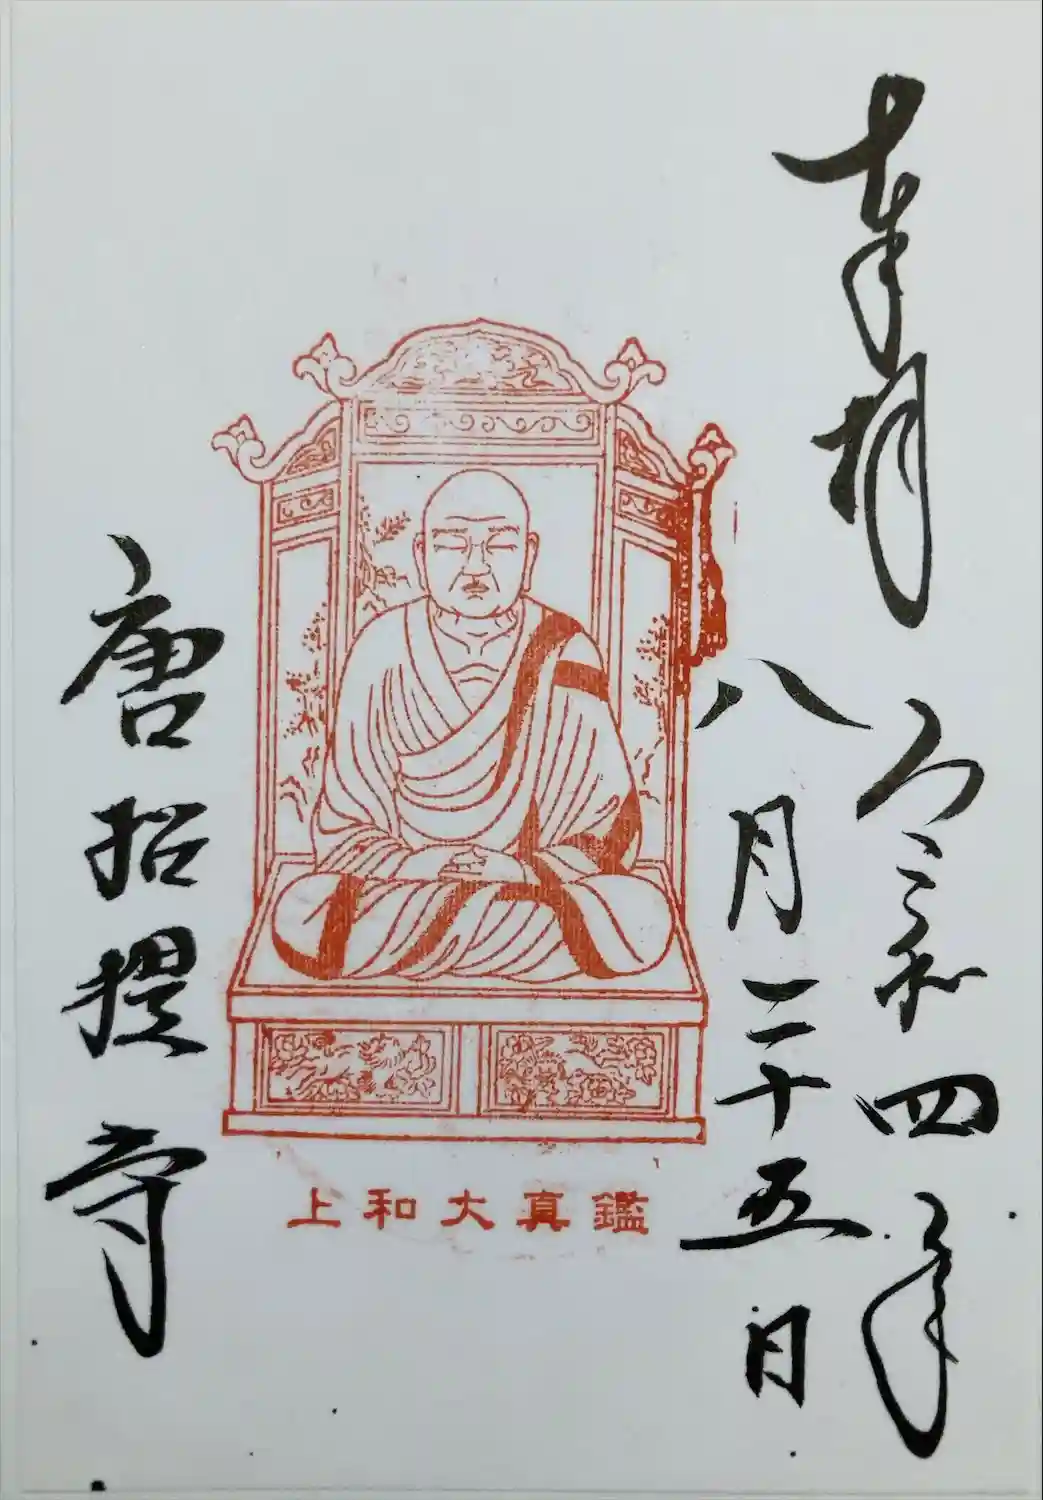 奉拝
令和四年
八月二十五日
鑑真大和上
唐招提寺